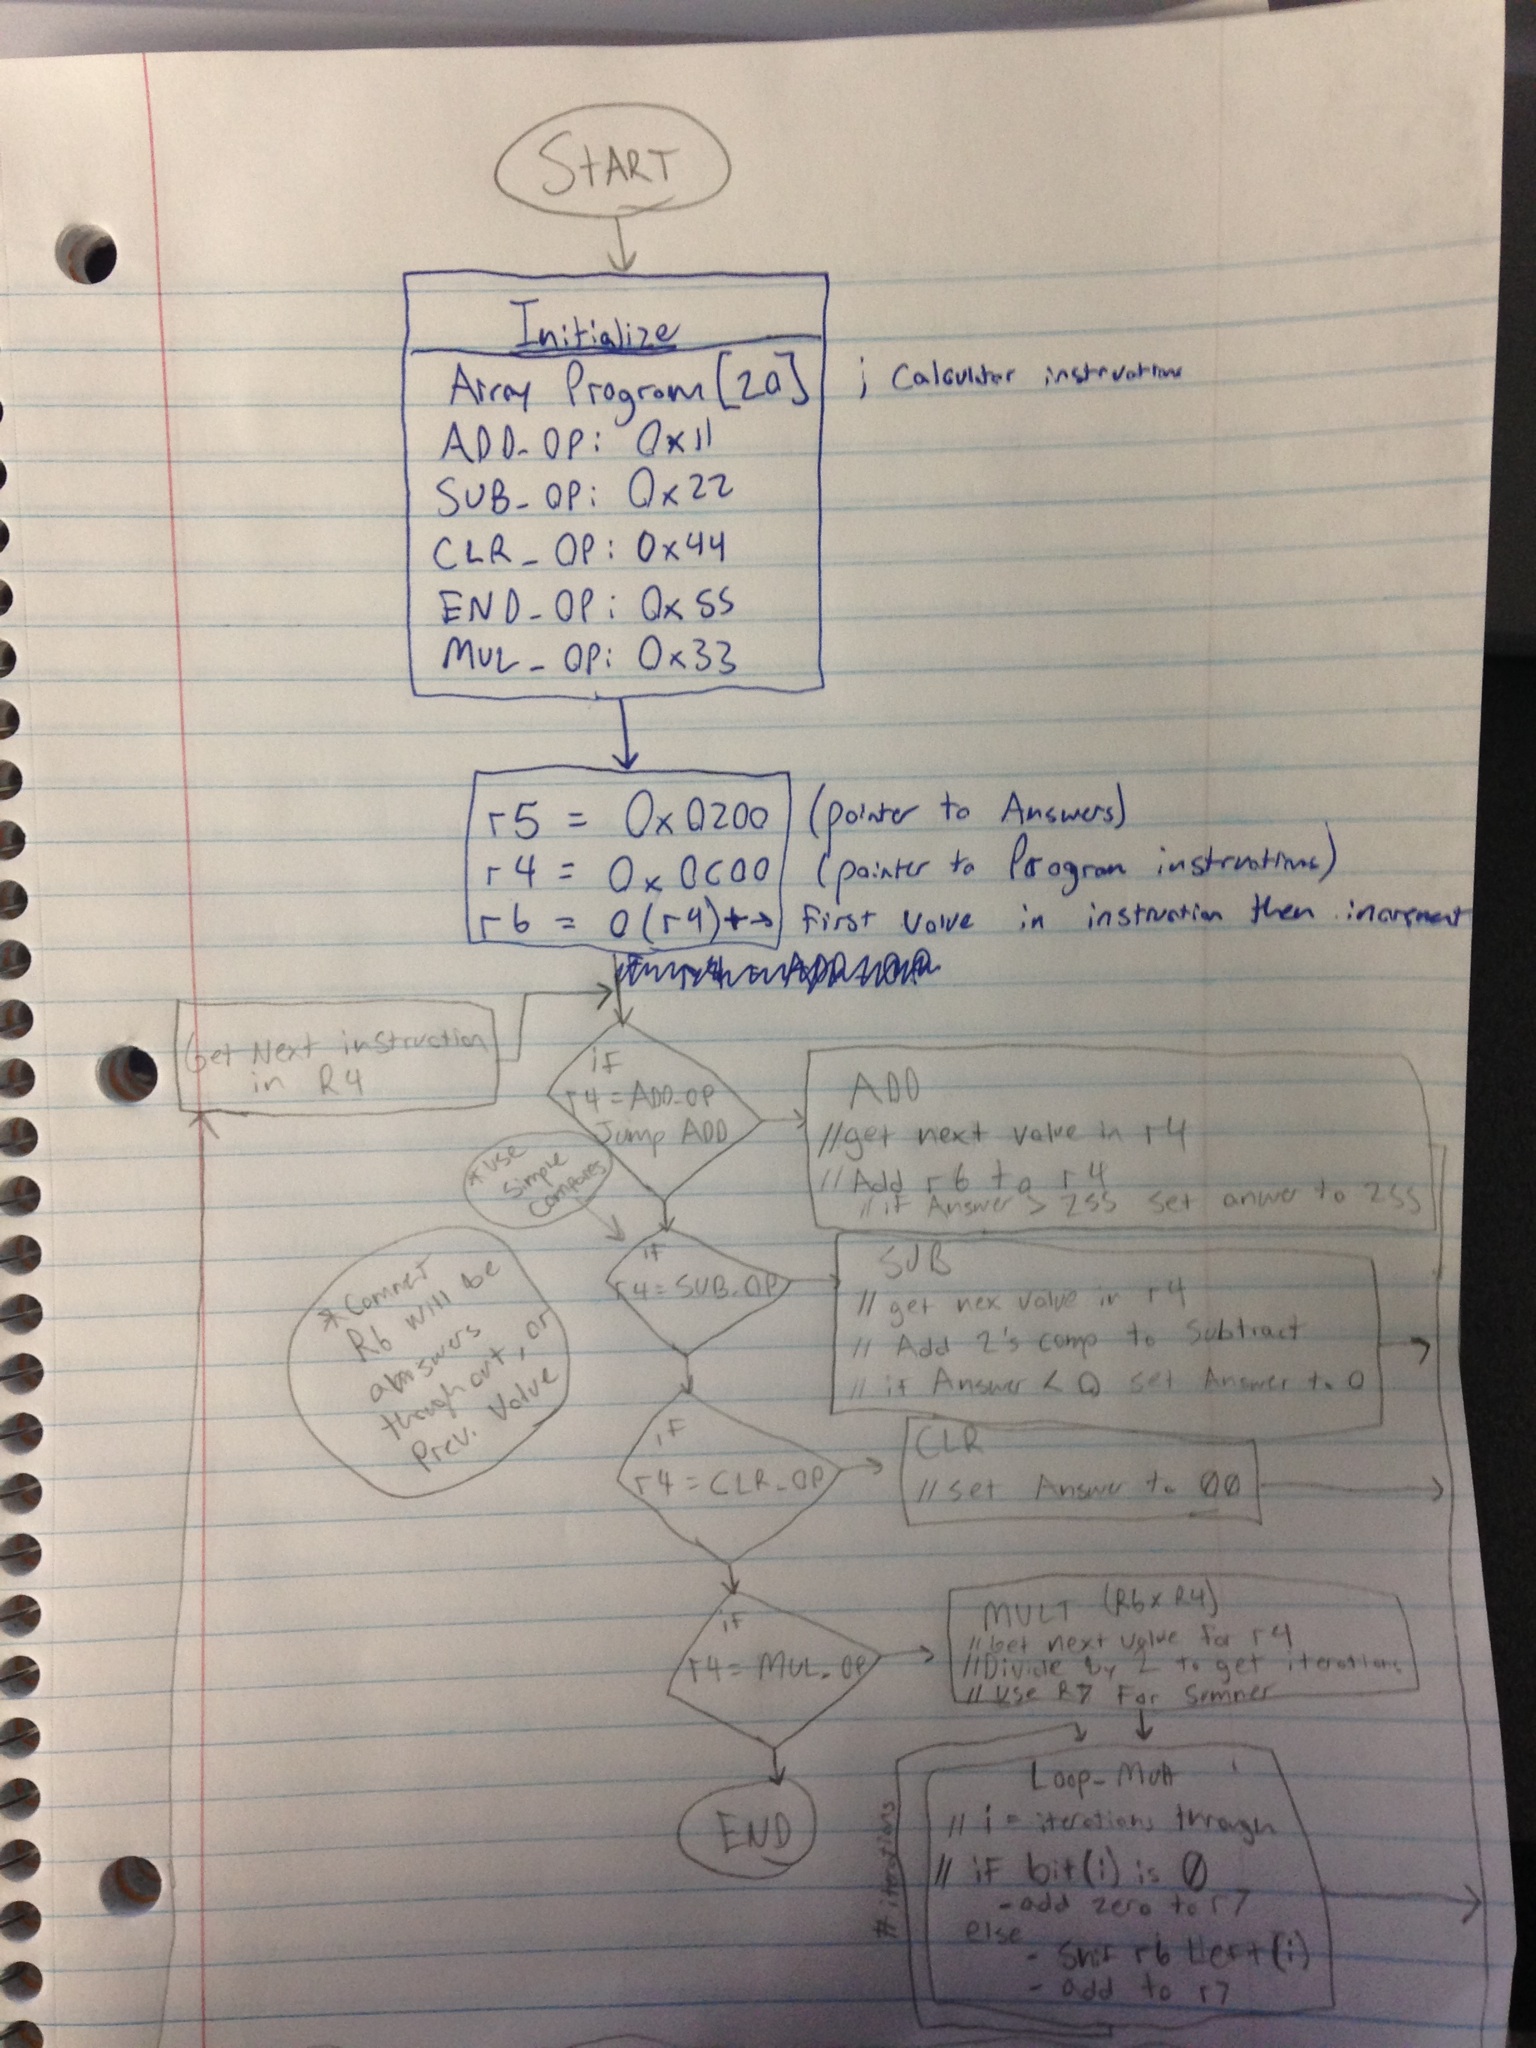 START
Initialize
Array Program [20] ; Calculator instructions
ADD_OP: 0x11
SUB_OP: 0x22
CLR_OP: 0x44
END_OP: 0x55
MUL_OP: 0x33
r5 = 0x0200 (pointer to Answers)
r4 = 0x0C00 (pointer to Program instructions)
r6 = 0(r4)+ → First value in instruction then increment
Get Next instruction
in R4
if
r4 = ADD_OP
Jump ADD
ADD
//get next value in r4
//Add r6 to r4
// if Answer > 255 set anwer to 255
* use
simple
compares
if
r4 = SUB_OP
SUB
// get nex value in r4
// Add 2's comp to subtract
// if Answer < 0 set Answer to 0
* Comment
R6 will be
answers
though out, or
Prev. Value
if
r4 = CLR_OP
CLR
// set Answer to 00
if
r4 = MUL_OP
MULT (R6 x R4)
// Get next value for r4
// Divide by 2 to get iterations
// use R7 For
END
# iterations
Loop_Mult
// i = iterations through
// if bit(i) is 0
- add zero to r7
else
- r6 left (i)
- add to r7